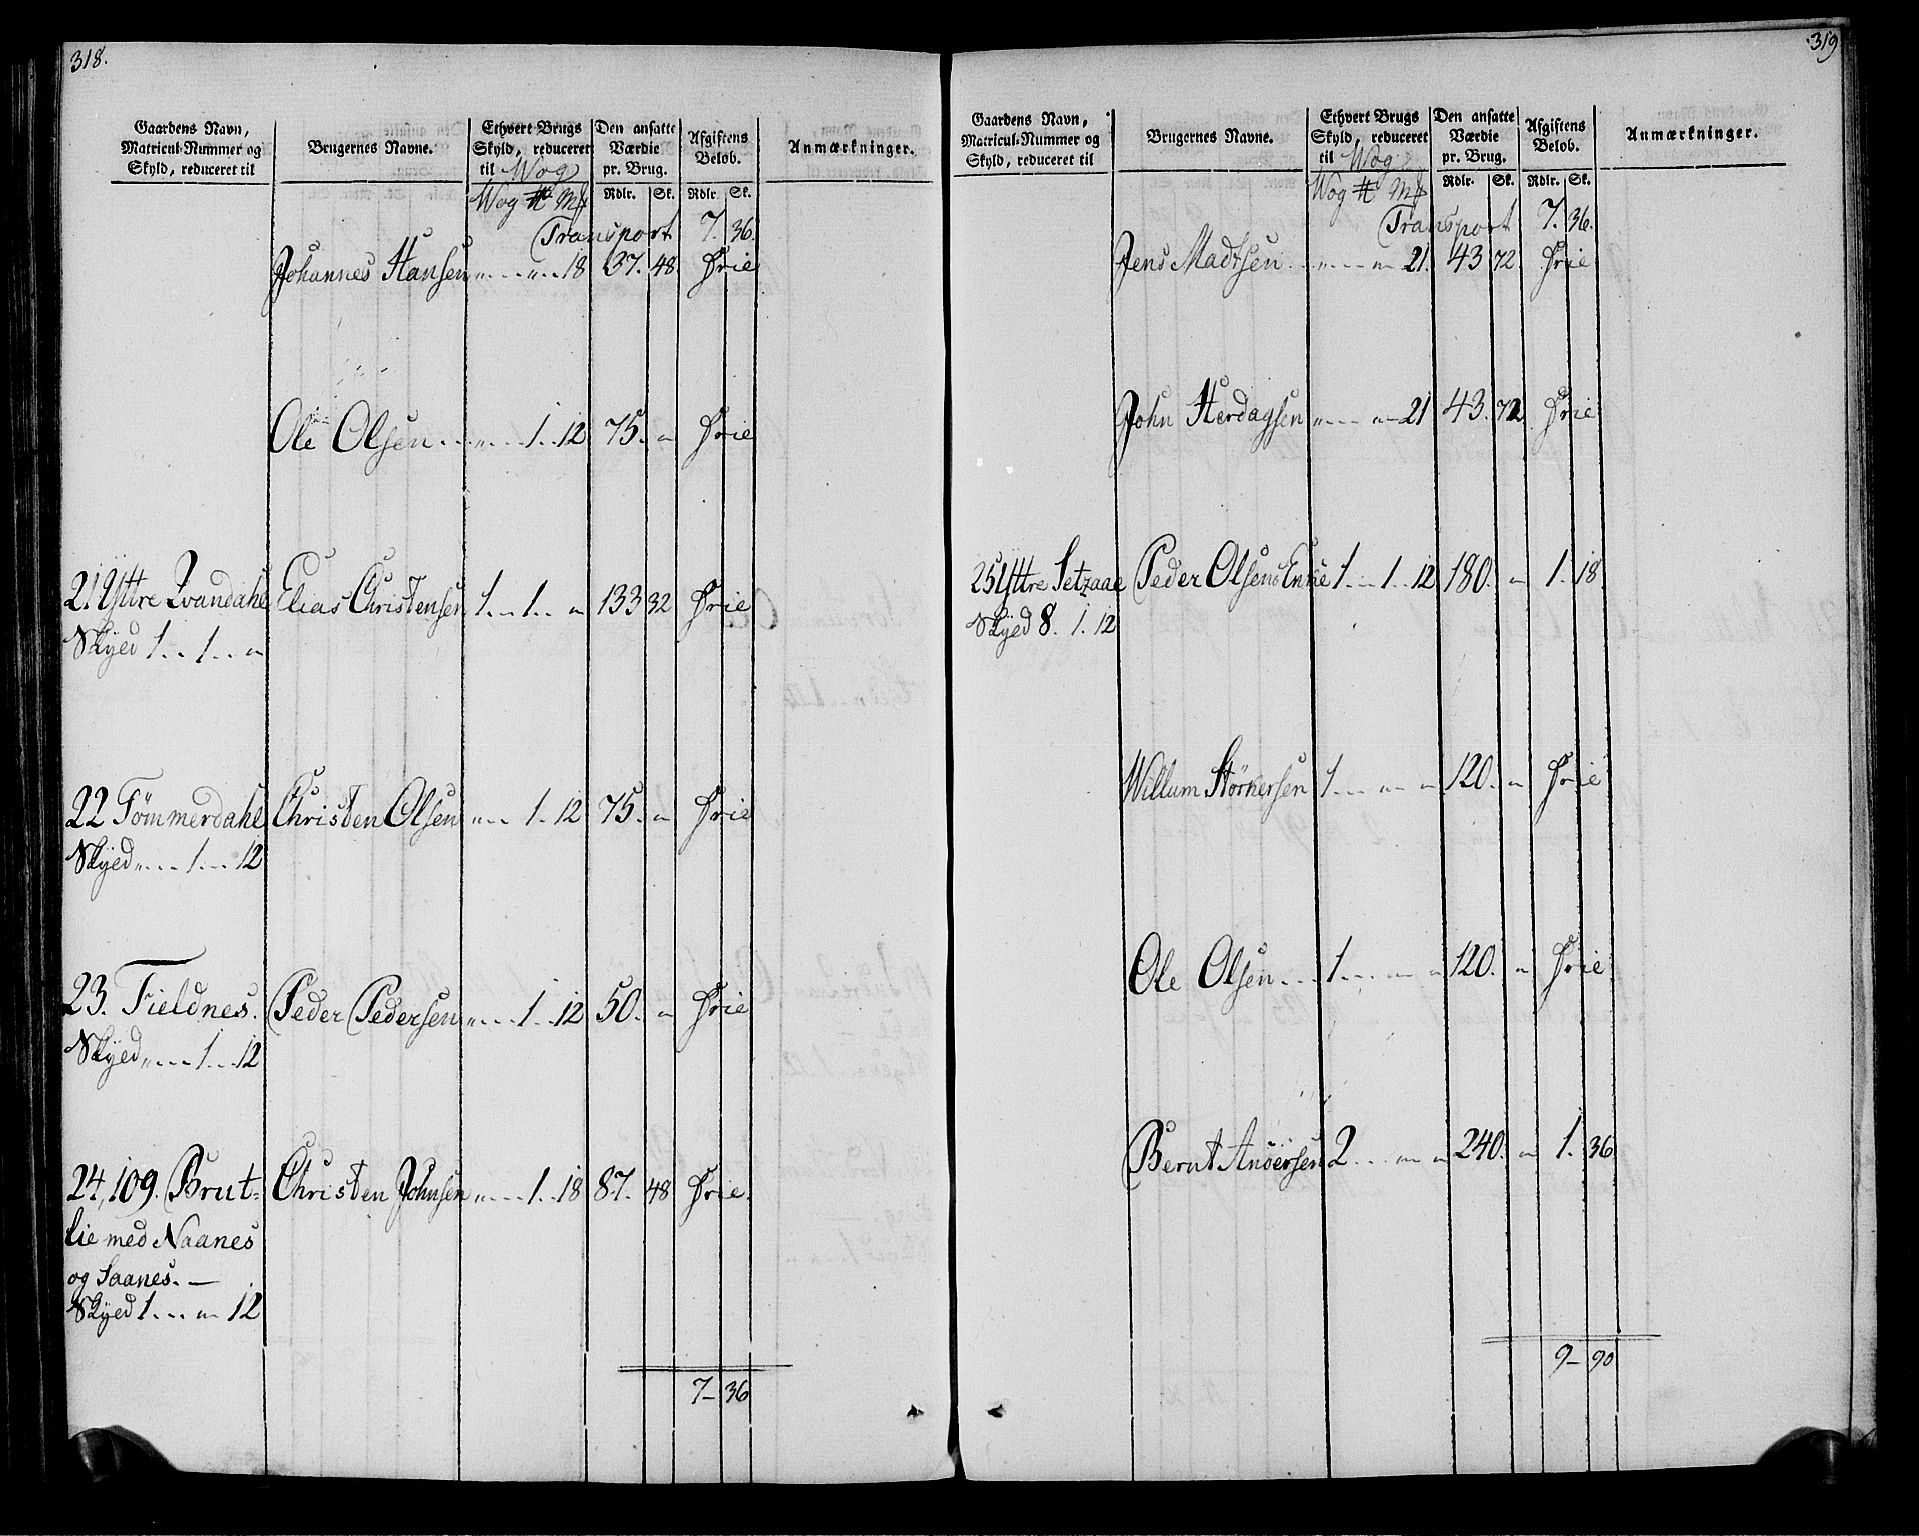 318.
Gaardens Navn,
Matricul-Nummer og
Skyld, reduceret til
Brugernes Navne.
Ethvert Brugs
Skyld, reduceret
til Wog
Wog ℔ Mk
Den ansatte
Værdie
pr. Brug.
Rdlr. Sk.
Afgiftens
Beløb.
Rdlr. Sk.
Anmærkninger.
Transport 7. 36.
Johannes Hansen „ „ 18 37. 48. Frie
Ole Olsen „ 1 12 75. „ Frie
21 Yttre Evandahl Elias Christensen 1 „ 1 „ 133 32 Frie
Skyed 1 1 „
22 Tömmerdahl Christen Olsen „ 1 12 75. „ Frie
Skyed „ 1 12
23. Fieldnes. Peder Pedersen „ 1 12 50. „ Frie
Skyed „ 1 12
24, 109. Brut- Christen Johnsen „ 1 18 87. 48 Frie.
lie med Naanes
og Saanes. —
Skyed 1 „ 12
7 – 36
319
Gaardens Navn,
Matricul-Nummer og
Skyld, reduceret til
Brugernes Navne.
Ethvert Brugs
Skyld, reduceret
til Wog
Wog ℔ Mk
Den ansatte
Værdie
pr. Brug.
Rdlr. Sk.
Afgiftens
Beløb.
Rdlr. Sk.
Anmærkninger.
Transport 7. 36.
Jens Madtsen „ „ 21. 43 72 Frie
John Herdagsen „ „ 21 43. 72 Frie
25 Yttre Setzaae Peder Olsens Enke 1 1 12 180. „ 1. 18.
Skyed 8. 1. 12
Willum Störkersen 1 „ „ 120. „ Frie
Ole Olsen 1 „ „ 120. „ Frie
Bernt Andersen 2 „ „ 240. „ 1. 36
9 – 90